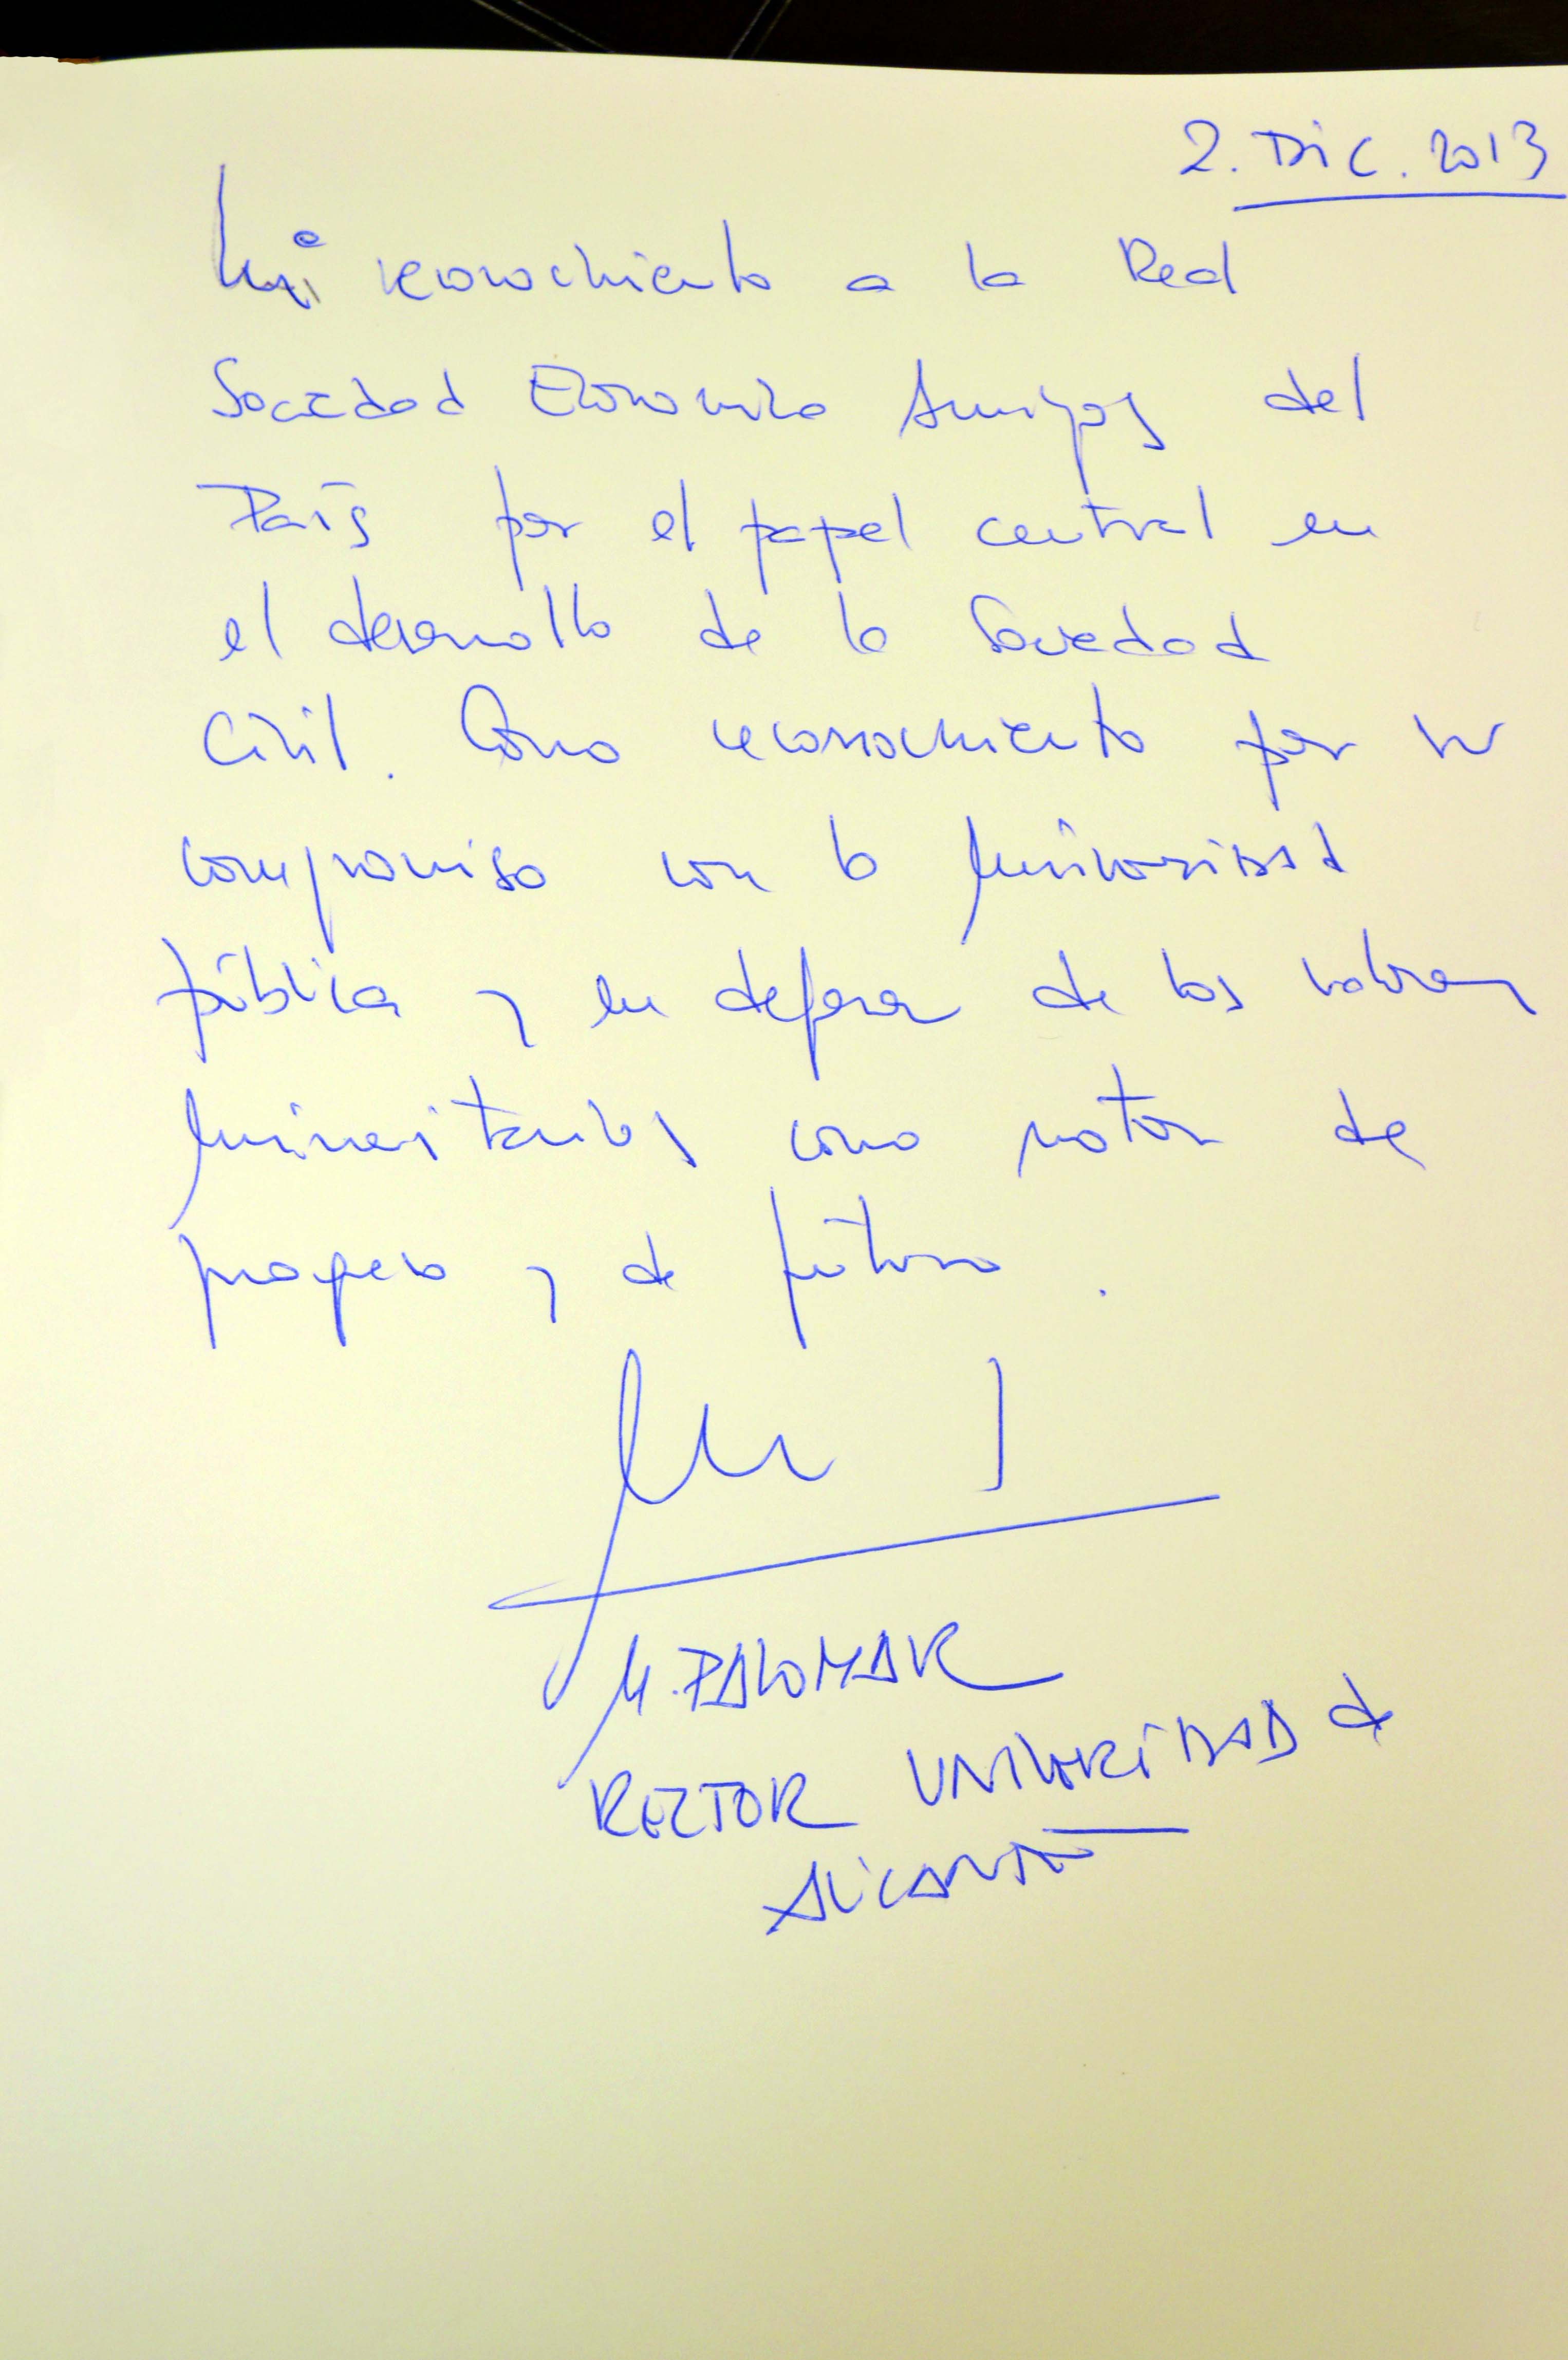 2. Dic. 2013
Mi reconocimiento a la Real
Sociedad Economica Amigos del
País por el papel central en
el desarrollo de la Sociedad
Civil. Como reconocimiento por su
compromiso con la Universidad
pública y en defensa de los valores
Universitarios como motor de
progreso y de futuro.
M. PALOMAR
RECTOR UNIVERSIDAD de
ALICANTE